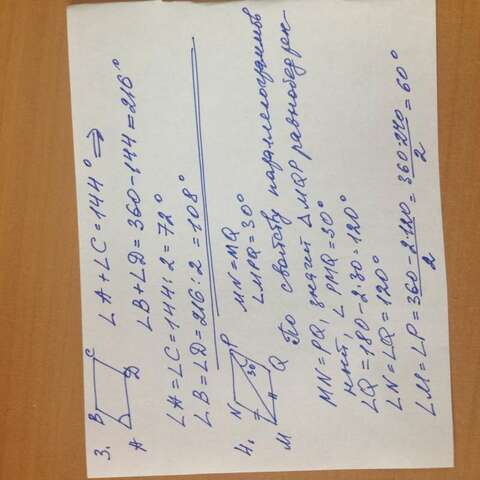 3. B C ∠A+∠C=144° ⇒
A D ∠B+∠D=360-144=216°
∠A=∠C=144:2=72°
∠B=∠D=216:2=108°
4. N P MN=MQ
30 ∠MPQ=30°
M Q По свойству параллелограммов
MN=PQ, значит △MQP равнобедрен-
ный, ∠PMQ=30°
∠Q=180-2·30=120°
∠N=∠Q=120°
∠M=∠P=360-2·120/2=360-240/2=60°